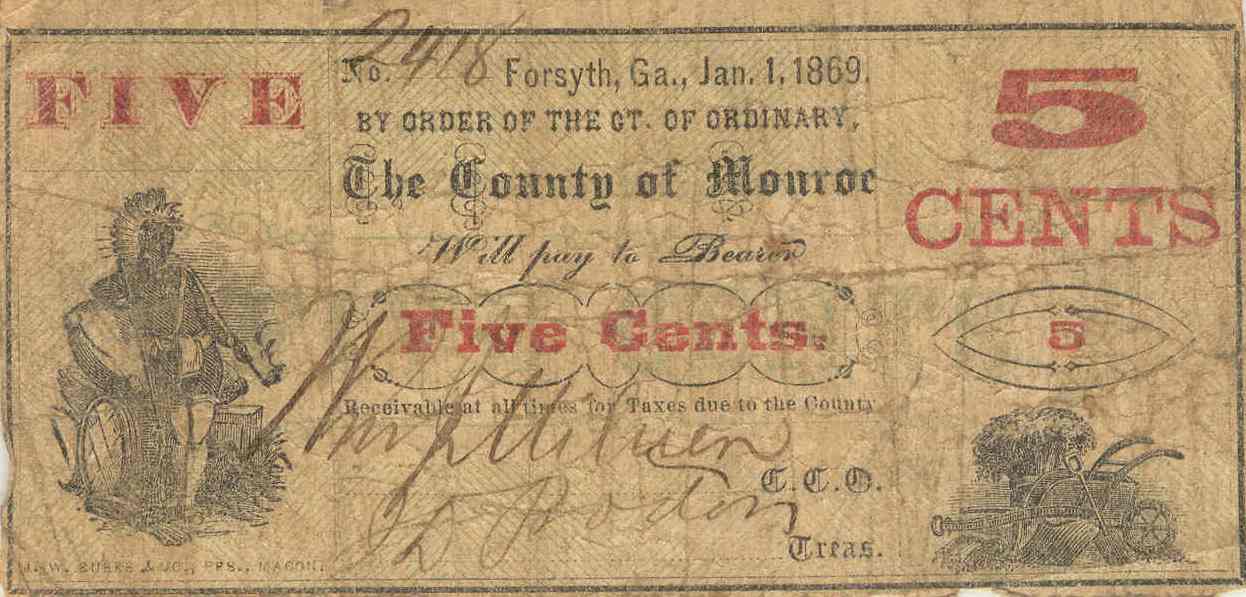 FIVE
No. 2418 Forsyth, Ga., Jan. 1, 1869.
BY ORDER OF THE CT. OF ORDINARY,
The County of Monroe
Will pay to Bearer
Five Cents.
Receivable at all times for Taxes due to the County
C. C. O.
Treas.
5
CENTS
5
J. W. BURKE & CO., PRS., MACON.